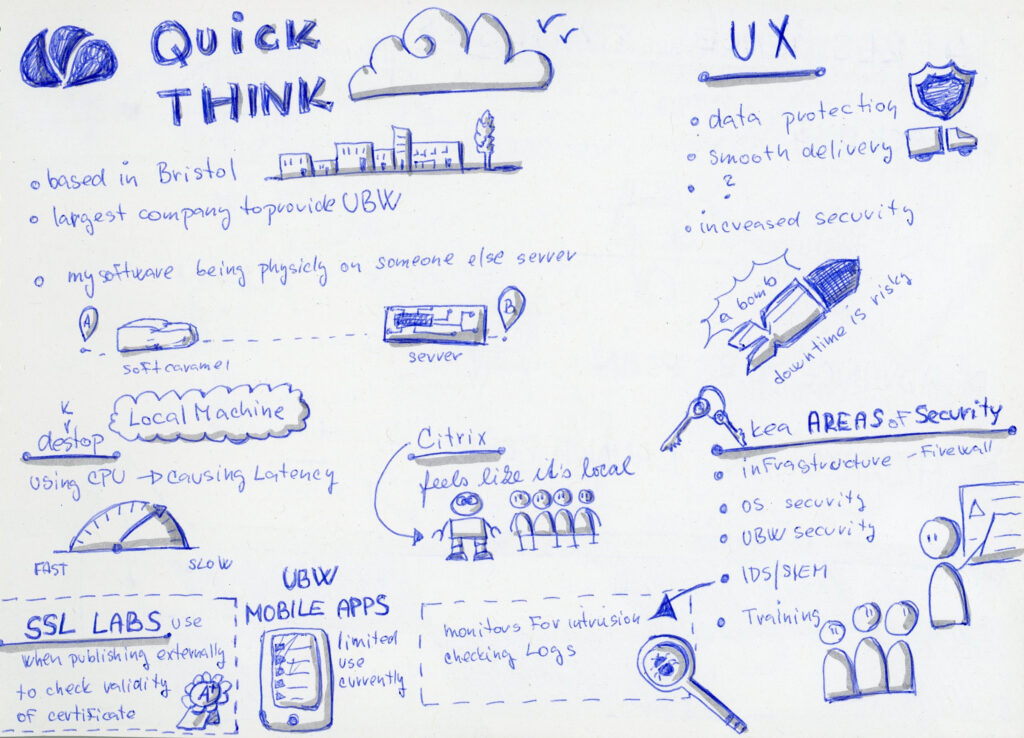 QUICK
THINK
• based in Bristol
• largest company to provide UBW
• my software being physicly on someone else server
A
B
soft caramel
server
K
destop
Local Machine
using CPU → causing Latency
FAST
SLOW
Citrix
feels like it's local
SSL LABS use
when publishing externally
to check validity
of certificate
A+
UBW
MOBILE APPS
limited
use
currently
monitors For intrusion
checking Logs
UX
• data protection
• smooth delivery
• ?
• increased security
a bomb
downtime is risky
kea AREAS of Security
• infrastructure - Firewall
• OS security
• UBW security
• IDS/SIEM
• Training